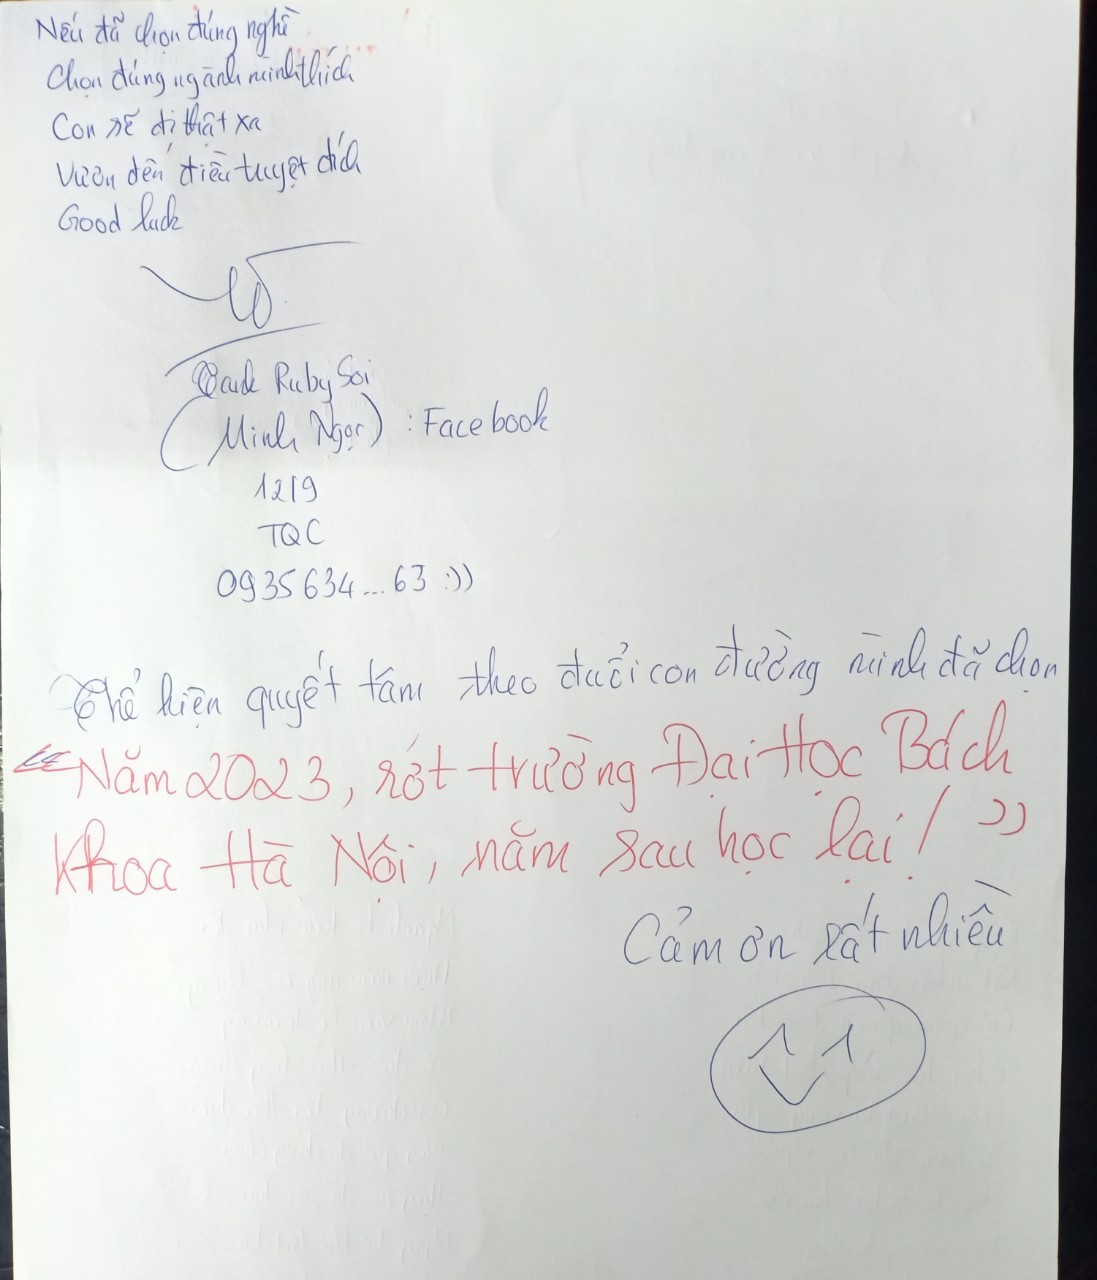 Nếu đã chọn đúng nghề
Chọn đúng ngành mình thích
Con sẽ đi thật xa
Vươn đến điều tuyệt đích
Good luck
Ruby Soi
(Minh Ngọc) : Facebook
1219
TQC
0935634...63 :))
Thể hiện quyết tâm theo đuổi con đường mình đã chọn
"Năm 2023, rớt trường Đại Học Bách
Khoa Hà Nội, năm sau học lại!"
Cảm ơn rất nhiều